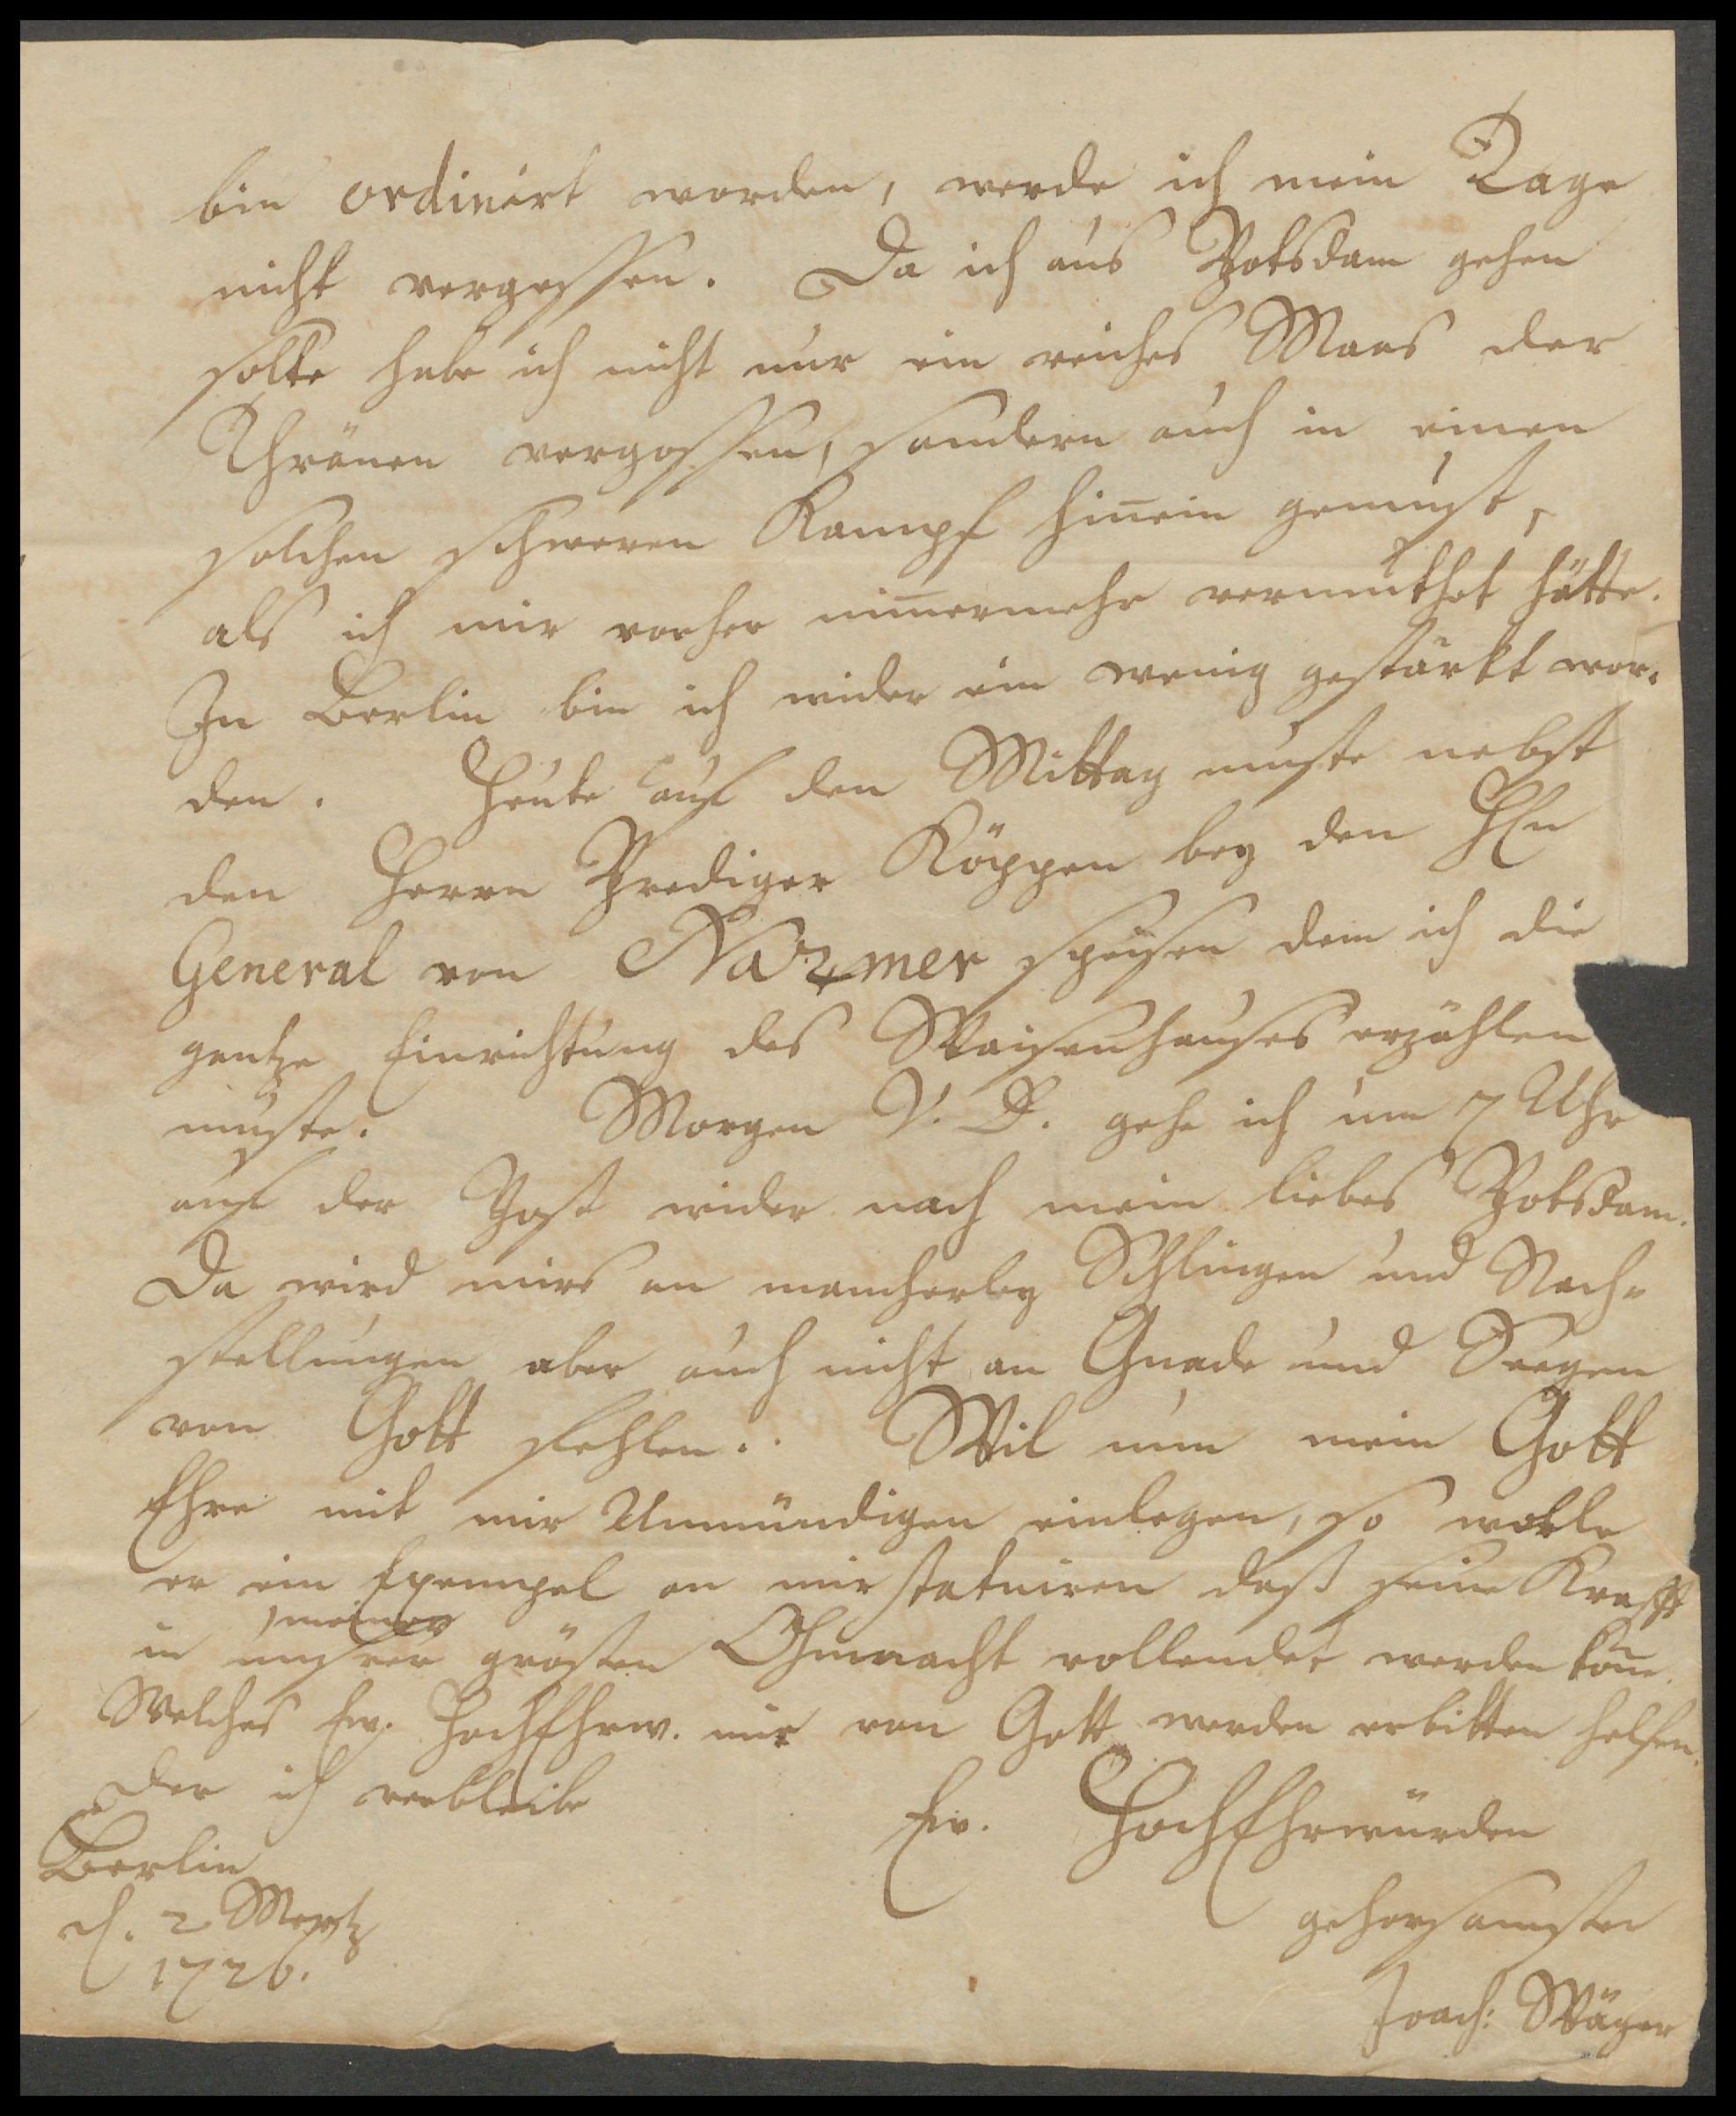 bin ordinirt worden, werde ich mein Tage
nicht vergessen. Da ich aus Potsdam gehen
solte habe ich nicht nur ein reiches Maas der
Thränen vergossen, sondern auch in einen
solchen schweren Kampf hinein gemust,
als ich mir vorher nimmermehr vermuthet hätte.
In Berlin bin ich wider ein wenig gestärkt wor-
den. Heute auf den Mittag muste nebst
den Herrn Prediger Köppen bey den HEn
General von Nazmer speisen dem ich die
gantze Einrichtung des Waisenhauses erzählen
muste. Morgen V. D. gehe ich um 7 Uhr
auf der Post wider nach mein liebes Potsdam.
Da wird mirs an mancherley Schlingen und Nach-
stellungen aber auch nicht an Gnade und Seegen
von Gott fehlen. Wil nun mein Gott
Ehre mit mir Unmündigen einlegen, so wolle
er ein Exempel an mir statuiren daß seine Krafft
meiner
in unsrer grösten Ohnmacht vollendet werden könne.
Welches Ew. HochEhrw. mir von Gott werden erbitten helfen.
der ich verbleibe
Ew. HochEhrwürden
Berlin
d. 2 Mertz
1726.
gehorsamster
Joach: Wäger